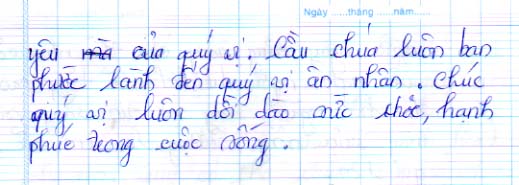 Ngày ......tháng ......năm......
yêu mà của quý vị. Cầu chúa luôn ban
phước lành đến quý vị ân nhân. chúc
quý vị luôn dồi dào sức khỏe, hạnh
phúc trong cuộc sống.